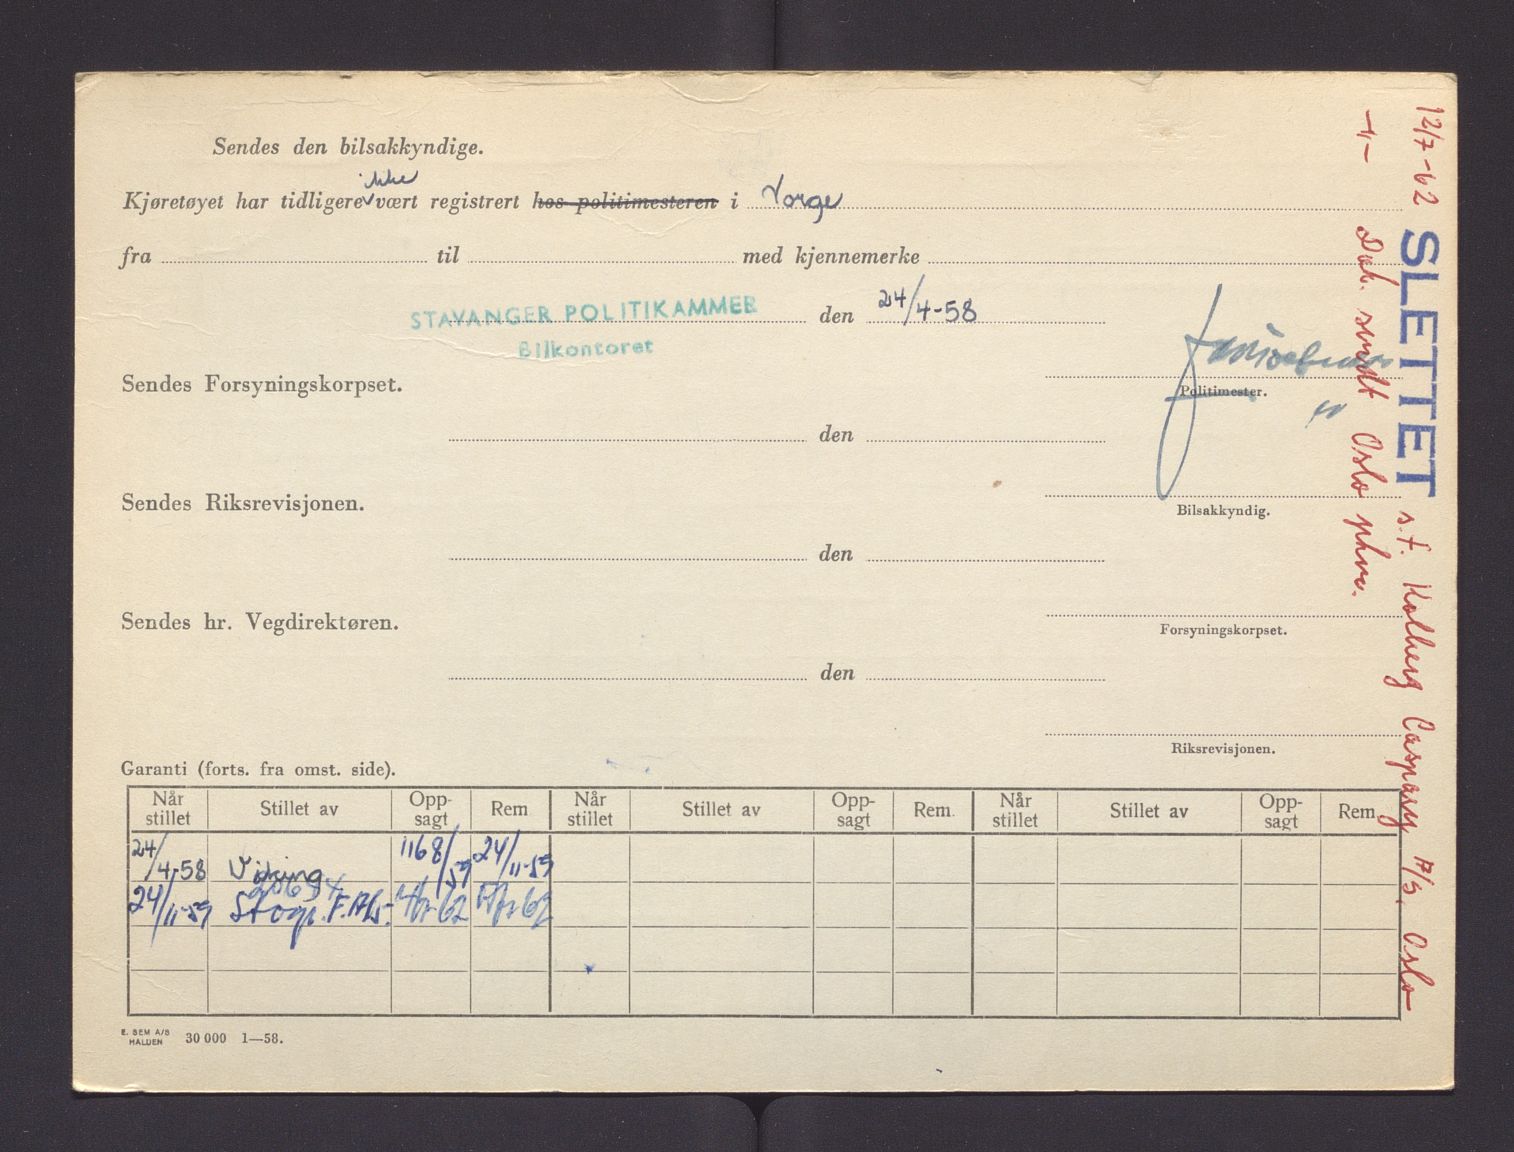 Sendes den bilsakkyndige.
ikke
Kjøretøyet har tidligere vært registrert hos politimesteren i Norge
fra til med kjennemerke
STAVANGER POLITIKAMMER den 24/4-58
Bilkontoret
Sendes Forsyningskorpset.
Politimester.
den
Sendes Riksrevisjonen.
Bilsakkyndig.
den
Sendes hr. Vegdirektøren.
Forsyningskorpset.
den
Riksrevisjonen.
Garanti (forts. fra omst. side).
Når stillet Stillet av Opp-sagt Rem Når stillet Stillet av Opp-sagt Rem. Når stillet Stillet av Opp-sagt Rem.
24/4-58 Viking 1168/59 24/11-59
24/11-59
E. SEM A/S
HALDEN 30 000 1—58.
12/7-62 SLETTET s.f. Kolberg Caspary A/S, Oslo
-"- Dok. sendt Oslo